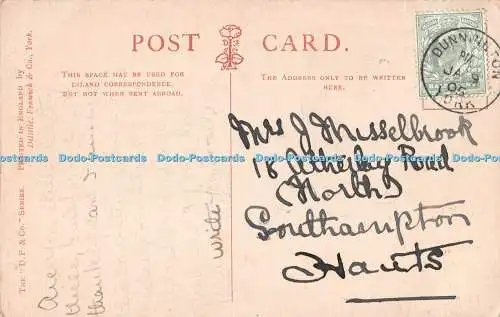 POST CARD.
THIS SPACE MAY BE USED FOR
INLAND CORRESPONDENCE,
BUT NOT WHEN SENT ABROAD.
THE ADDRESS ONLY TO BE WRITTEN
HERE.
THE "D.F. & Co." SERIES. PRINTED IN ENGLAND by
Delittle, Fenwick & Co., York.
DUNNINGTON
JA 9
05
YORK
Mrs J Misselbrook
18 Atherley Road
(North)
Southampton
Hants
write
Are
thanks
Dodo-Postcards Dodo-Postcards Dodo-Postcards Dodo-Postcards Dodo-Postcards